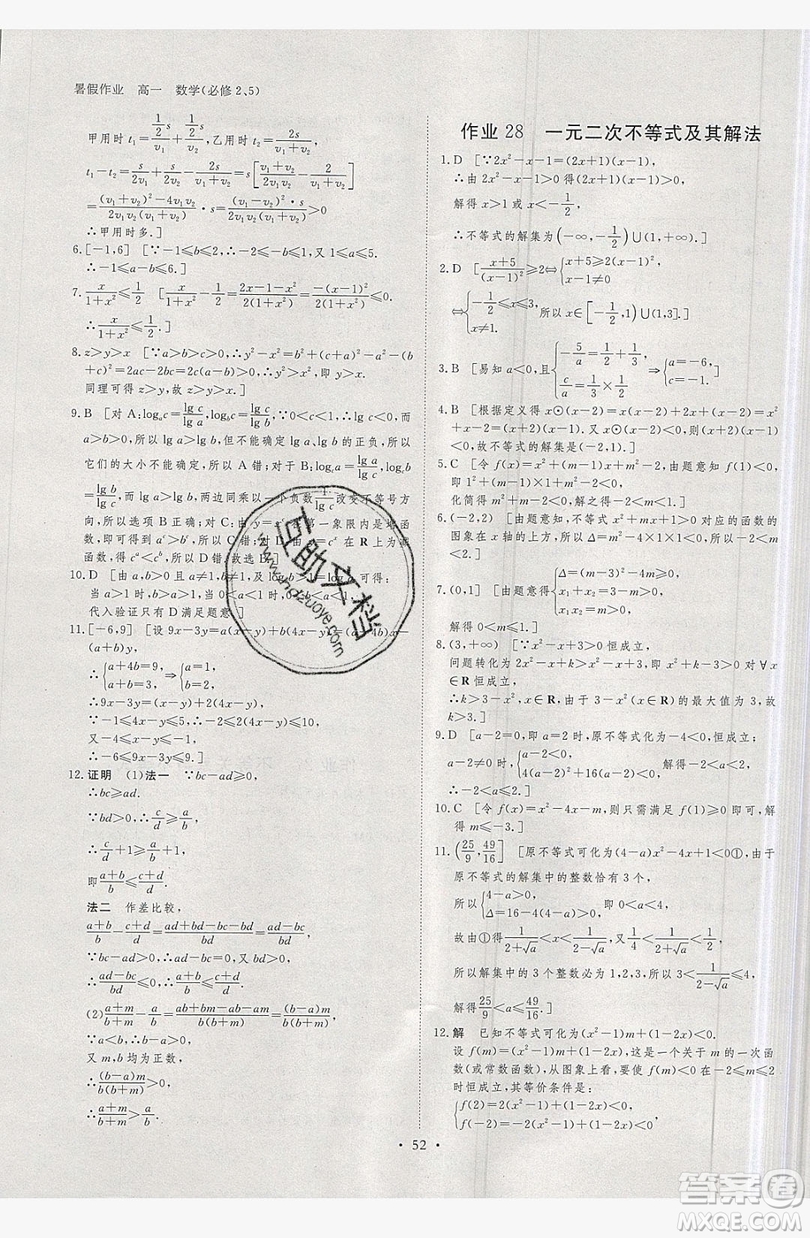 暑假作业 高一 数学(必修2、5)
甲用时t₁=\frac{\frac{1}{2}s}{v₁}+\frac{\frac{1}{2}s}{v₂},乙用时t₂=\frac{2s}{v₁+v₂},
t₁-t₂=\frac{s}{2v₁}+\frac{s}{2v₂}-\frac{2s}{v₁+v₂}=s[\frac{v₁+v₂}{2v₁v₂}-\frac{2}{v₁+v₂}]
=\frac{(v₁+v₂)²-4v₁v₂}{2v₁v₂(v₁+v₂)}·s=\frac{(v₁-v₂)²·s}{2v₁v₂(v₁+v₂)}>0
∴甲用时多.]
6.[-1,6] [∵-1≤b≤2,∴-2≤-b≤1,又1≤a≤5,
∴-1≤a-b≤6.]
7.\frac{x}{1+x²}≤\frac{1}{2} [∵\frac{x}{1+x²}-\frac{1}{2}=\frac{2x-1-x²}{2(1+x²)}=\frac{-(x-1)²}{2(1+x²)}≤0,
∴\frac{x}{1+x²}≤\frac{1}{2}.]
8.z>y>x [∵a>b>c>0,∴y²-x²=b²+(c+a)²-a²-(b
+c)²=2ac-2bc=2c(a-b)>0,∴y>x.
同理可得z>y,故z>y>x.]
9.B [对A:log_a c=\frac{lg c}{lg a},log_b c=\frac{lg c}{lg b},∵0<c<1,∴lg c<0,而
a>b>0,所以lg a>lg b,但不能确定lg a、lg b的正负,所以
它们的大小不能确定,所以A错;对B:log_c a=\frac{lg a}{lg c},log_c b=
\frac{lg b}{lg c},而lg a>lg b,两边同乘以一个负数\frac{1}{lg c}改变不等号方
向,所以选项B正确;对C:由y=x^c在第一象限内是增函
数,即可得到a^c>b^c,所以C错;对D:y=c^x在R上为减
函数,所以c^a<c^b,所以D错.故选B.]
10.D
当a>1时,b>a>1;当0<a<1时,0<b<a<1.
代入验证只有D满足题意.]
11.[-6,9] [设9x-3y=a(x+y)+b(4x-y)=(a+4b)x+
(a-b)y,
∴{a+4b=9,a-b=-3}⇒{a=-\frac{3}{5},
∴9x-3y=(x+y)+2(4x-y),
∵-1≤4x-y≤5,∴-2≤2(4x-y)≤10,
又-4≤x+y≤-1,
∴-6≤9x-3y≤9.]
12.证明 (1)法一 ∵bc-ad≥0,
∴bc≥ad.
∵bd>0,∴\frac{c}{d}≥\frac{a}{b},
∴\frac{c}{d}+1≥\frac{a}{b}+1,
即\frac{a+b}{b}≤\frac{c+d}{d}.
法二 作差比较,
\frac{a+b}{b}-\frac{c+d}{d}=\frac{ad+bd-bc-bd}{bd}=\frac{ad-bc}{bd},
∵bc-ad≥0,∴ad-bc≤0,又bd>0,
∴\frac{ad-bc}{bd}≤0,∴\frac{a+b}{b}≤\frac{c+d}{d}.
(2)\frac{a+m}{b+m}-\frac{a}{b}=\frac{ab+bm-ab-am}{b(b+m)}=\frac{(b-a)m}{b(b+m)},
∵a<b,∴b-a>0,
又m,b均为正数,
∴\frac{(b-a)m}{b(b+m)}>0,
∴\frac{a+m}{b+m}>\frac{a}{b}.
作业28 一元二次不等式及其解法
1.D [∵2x²-x-1=(2x+1)(x-1),
∴由2x²-x-1>0得(2x+1)(x-1)>0,
解得x>1或x<-\frac{1}{2},
∴不等式的解集为(-∞,-\frac{1}{2})∪(1,+∞).]
2.D [\frac{x+5}{(x-1)²}≥2⇔{x+5≥2(x-1)²,x-1≠0
⇔{-\frac{1}{2}≤x≤3,x≠1. 所以x∈[-\frac{1}{2},1)∪(1,3].]
3.B [易知a<0,且{-\frac{5}{a}=\frac{1}{2}+\frac{1}{3},\frac{c}{a}=\frac{1}{2}×\frac{1}{3}⇒{a=-6,c=-1.]
4.B [根据定义得x⊙(x-2)=x(x-2)+2x+(x-2)=x²+x
-2<0,解得-2<x<1,所以所求的解集是(-2,1).]
5.C [令f(x)=x²+mx+m²+6m,则由题意知f(1)<0,即1²
+m×1+m²+6m<0,
化简得m²+7m+1<0,解之得
6.(-2,2) [由题意知,不等式x²+mx+1>0对应的函数的
图象在x轴的上方,所以Δ=m²-4×1×1<0,所以-2<m
<2.]
7.(0,1] [由题意得{Δ=(m-3)²-4m≥0,x₁+x₂=3-m>0,x₁x₂=m>0,
解得0<m≤1.]
8.(3,+∞) [∵x²-x+3>0恒成立,
问题转化为x²-x+k>x²-2x+3,对∀x
∈R恒成立,即k>-x+3,x∈R恒成立.
∴k>(3-x²)max,而3-x²(x∈R)的最大值为3,故k>
3.]
9.D [∵当a-2=0,即a=2时,原不等式为-4<0,恒成立,
∴a=2.当a-2≠0时,由题意得
{a-2<0,
∴-2<a≤2.]
10.C [令f(x)=x²-4x-m,所以只需满足f(1)≥0即可,解
得m≤-3.]
11.(\frac{25}{9},\frac{49}{16}] [原不等式可化为(4-a)x²-4x+1<0①,由于
原不等式的解集中的整数恰有2个,
所以{4-a>0,Δ=16-4(4-a)>0,解得0<a<4.
故由①得\frac{1}{2+√a}<x<\frac{1}{2-√a},又\frac{1}{4}<\frac{1}{2+√a}<\frac{1}{2},
所以解集中的整数必为1,2,3,所以3<\frac{1}{2-√a}≤4
解得\frac{25}{9}<a≤\frac{49}{16}.]
12.解 已知不等式可化为(x²-1)m+(1-2x)<0.
设f(m)=(x²-1)m+(1-2x),这是一个关于m的一次函
数(或常数函数),从图象上看,要使f(m)<0在-2≤m≤2
时恒成立,其等价条件是:
{f(2)=2(x²-1)+(1-2x)<0,
f(-2)=-2(x²-1)+(1-2x)<0,
52
互助文档
答案圈
MXQE.COM